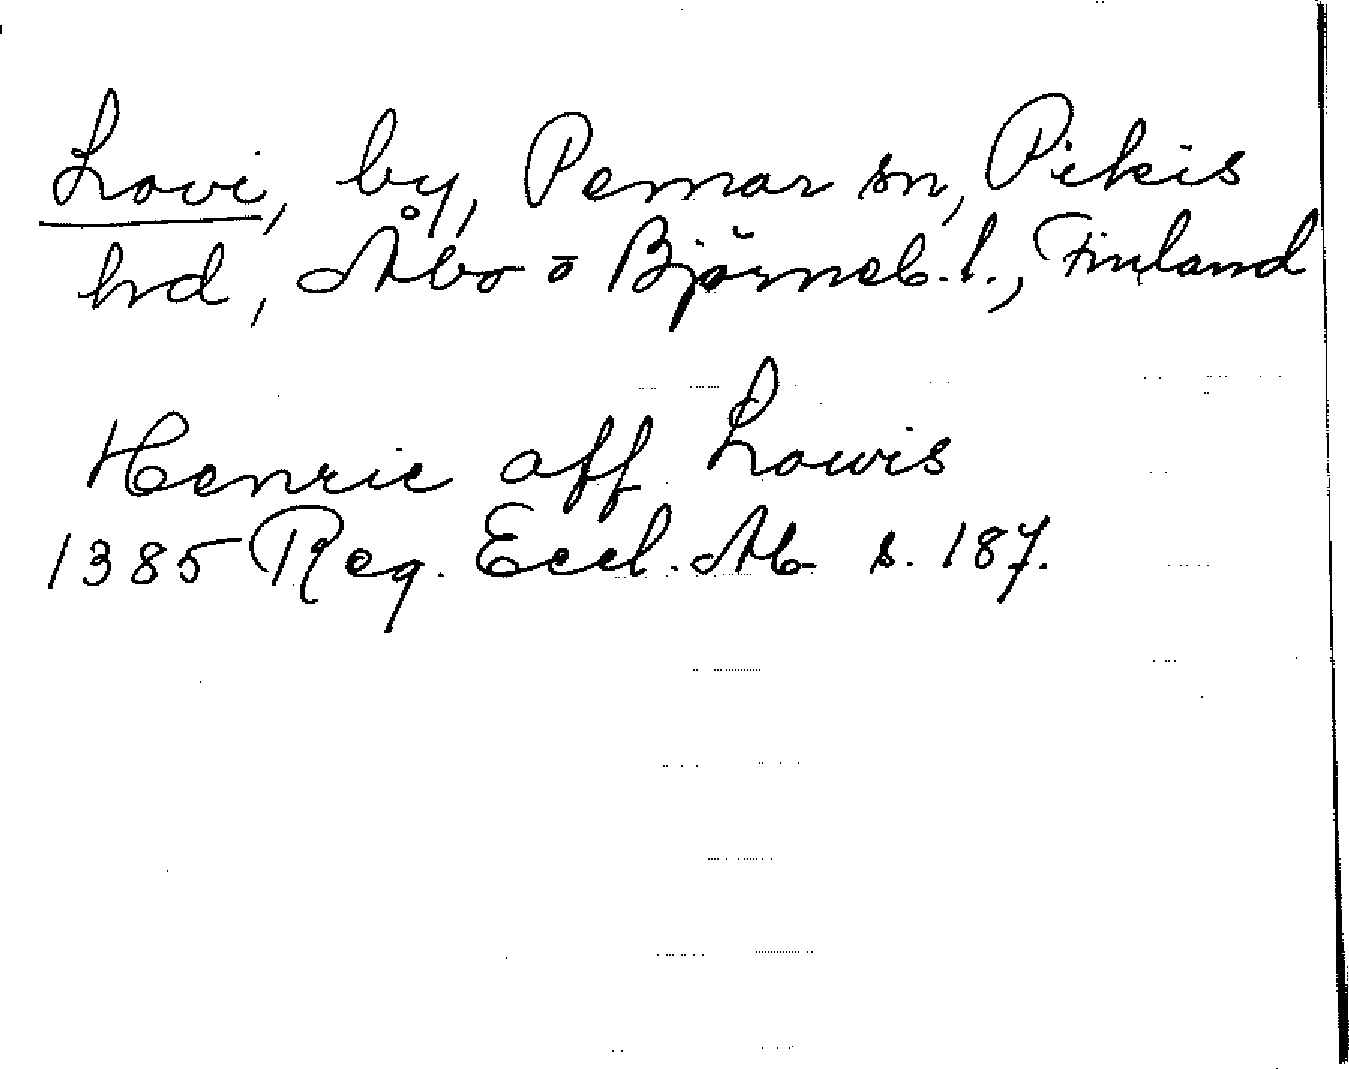 Lovi, by, Pemar sn, Pikis
hd, Åbo o Björneb. l., Finland
Henric aff Lowis
1385 Reg. Eccl. Ab s. 187.